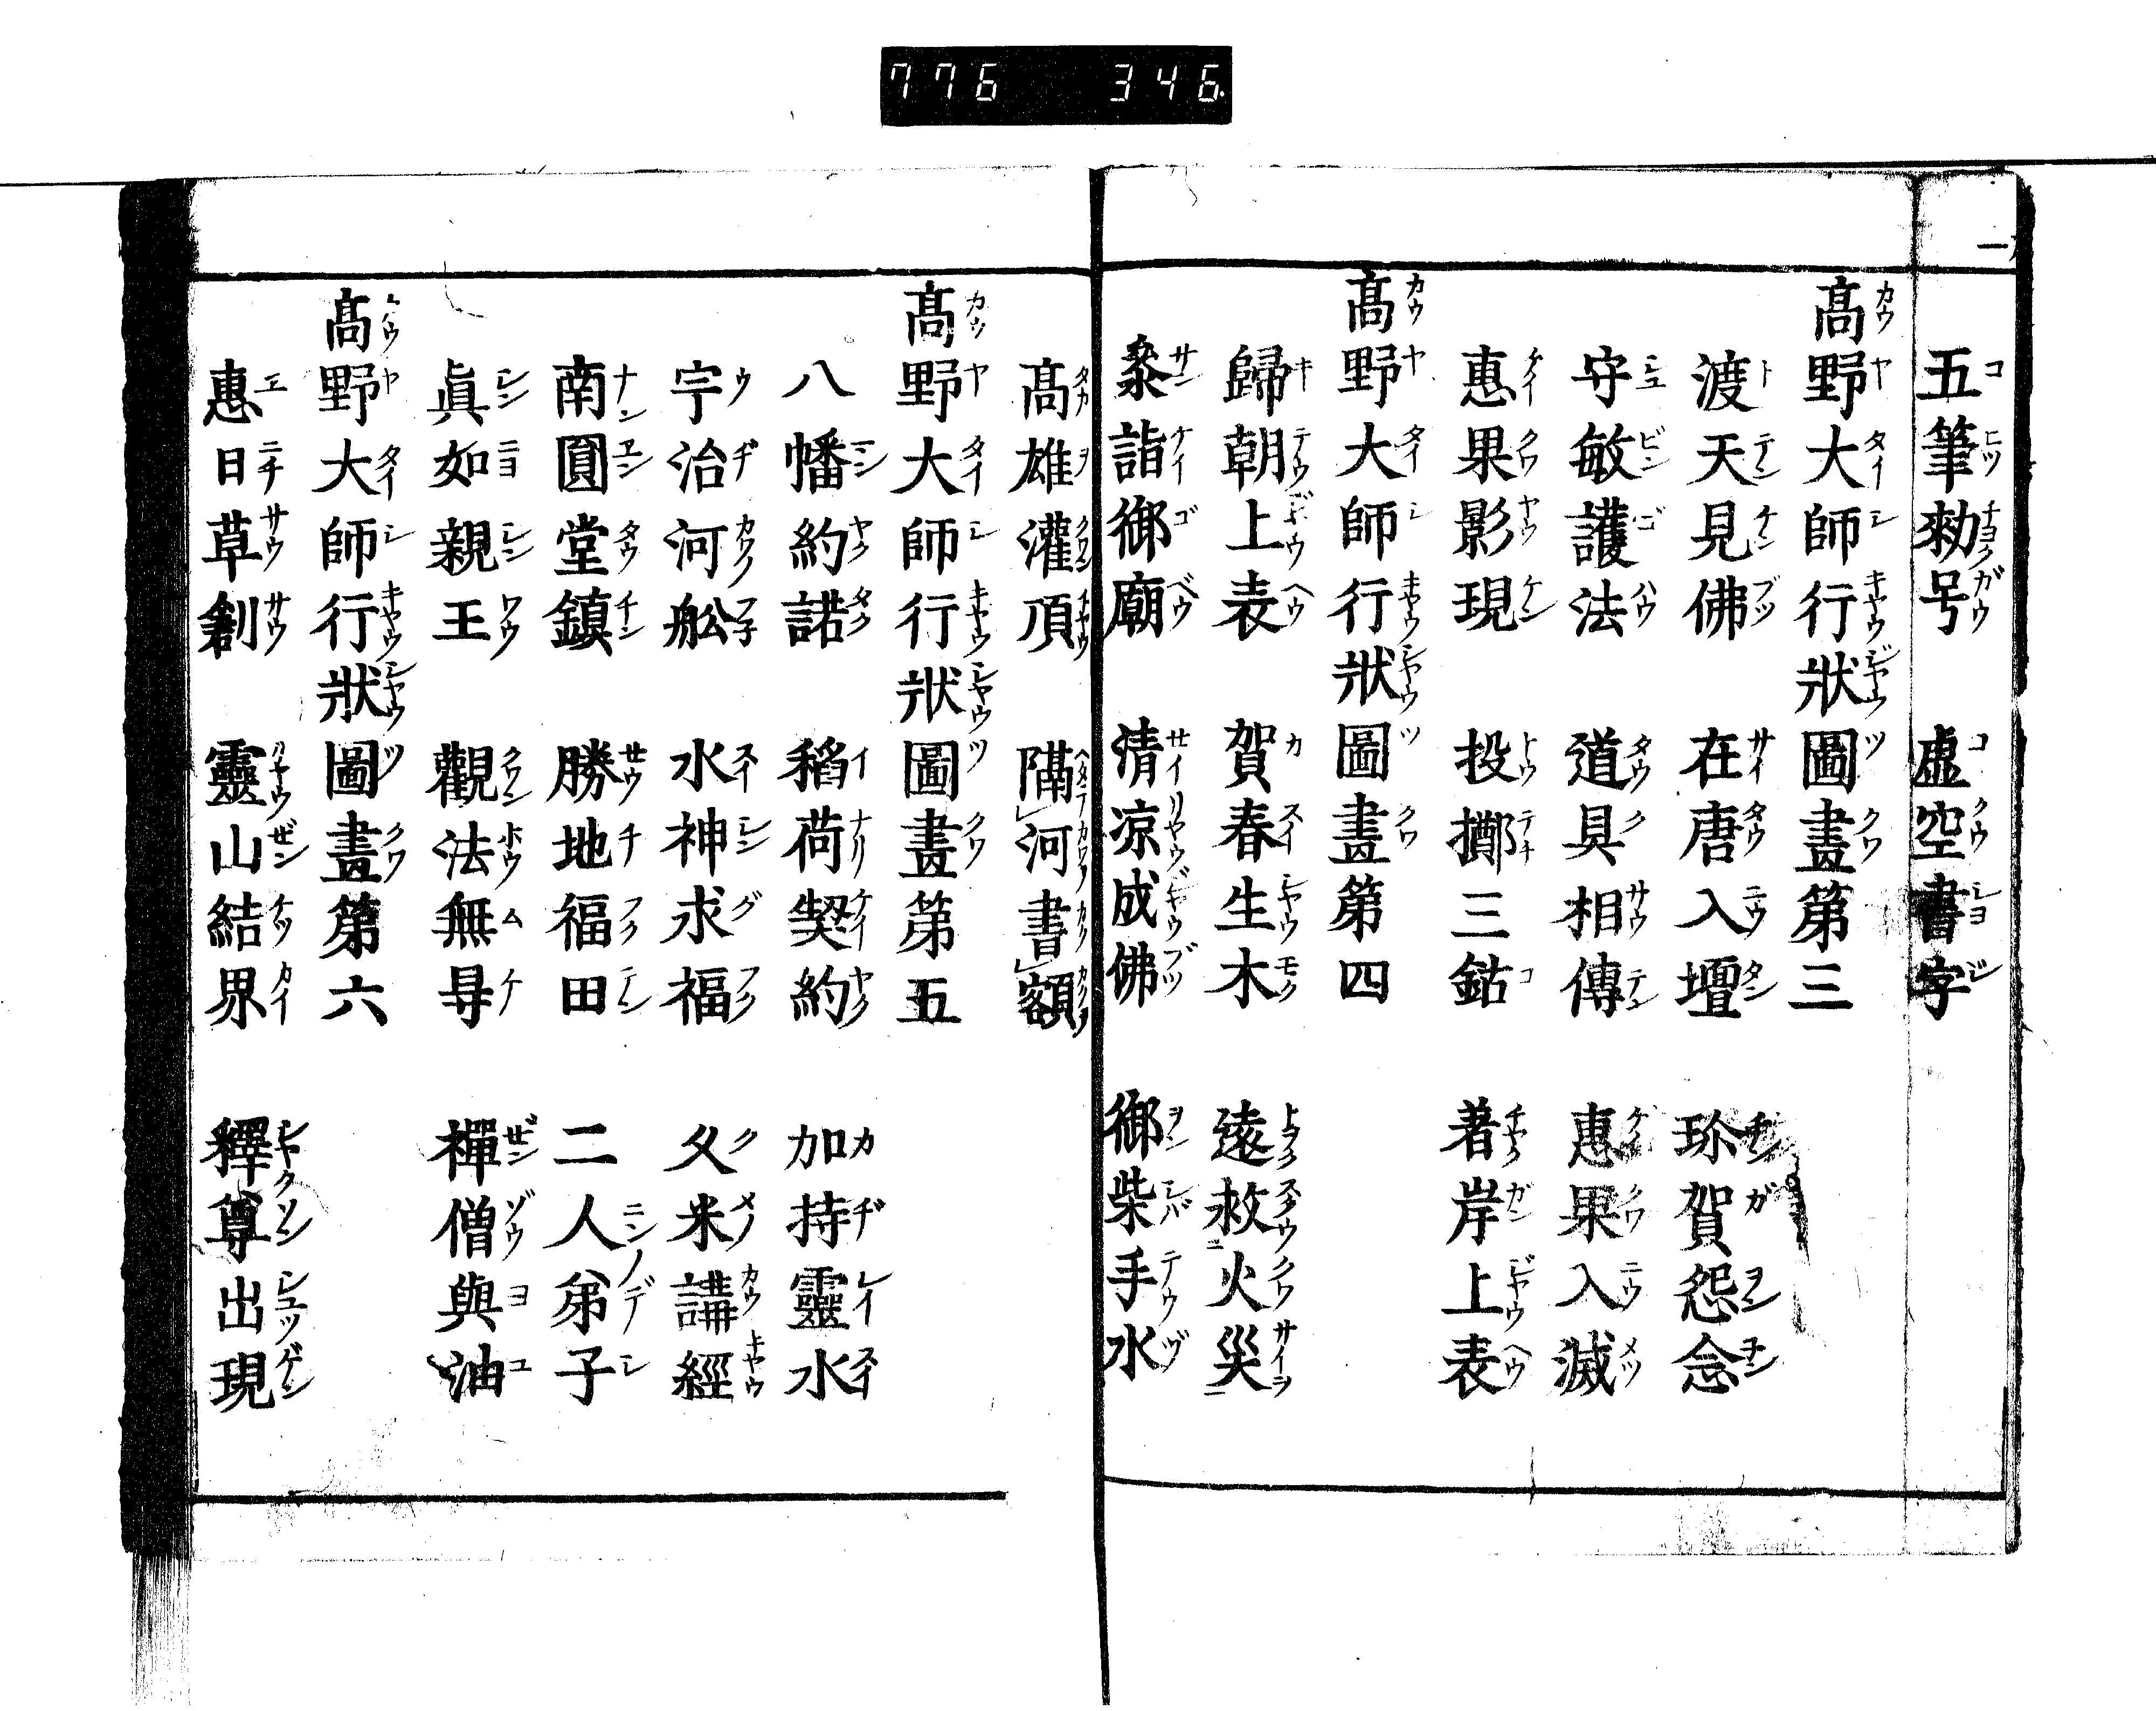 776 346
一
五筆勑号 虚空書字
髙野大師行狀圖畫第三
渡天見佛 在唐入壇 珍賀怨念
守敏護法 道具相傳 惠果入滅
惠果影現 投擲三鈷 著岸上表
髙野大師行狀圖畫第四
歸朝上表 賀春生木 遠救火災
叅詣御廟 清凉成佛 御柴手水
髙雄灌頂 隔河書額
髙野大師行狀圖畫第五
八幡約諾 稻荷契約 加持靈水
宇治河舩 水神求福 久米講經
南圓堂鎮 勝地福田 二人弟子
眞如親王 觀法無㝵 禪僧與油
髙野大師行狀圖畫第六
惠日草創 靈山結界 釋尊出現